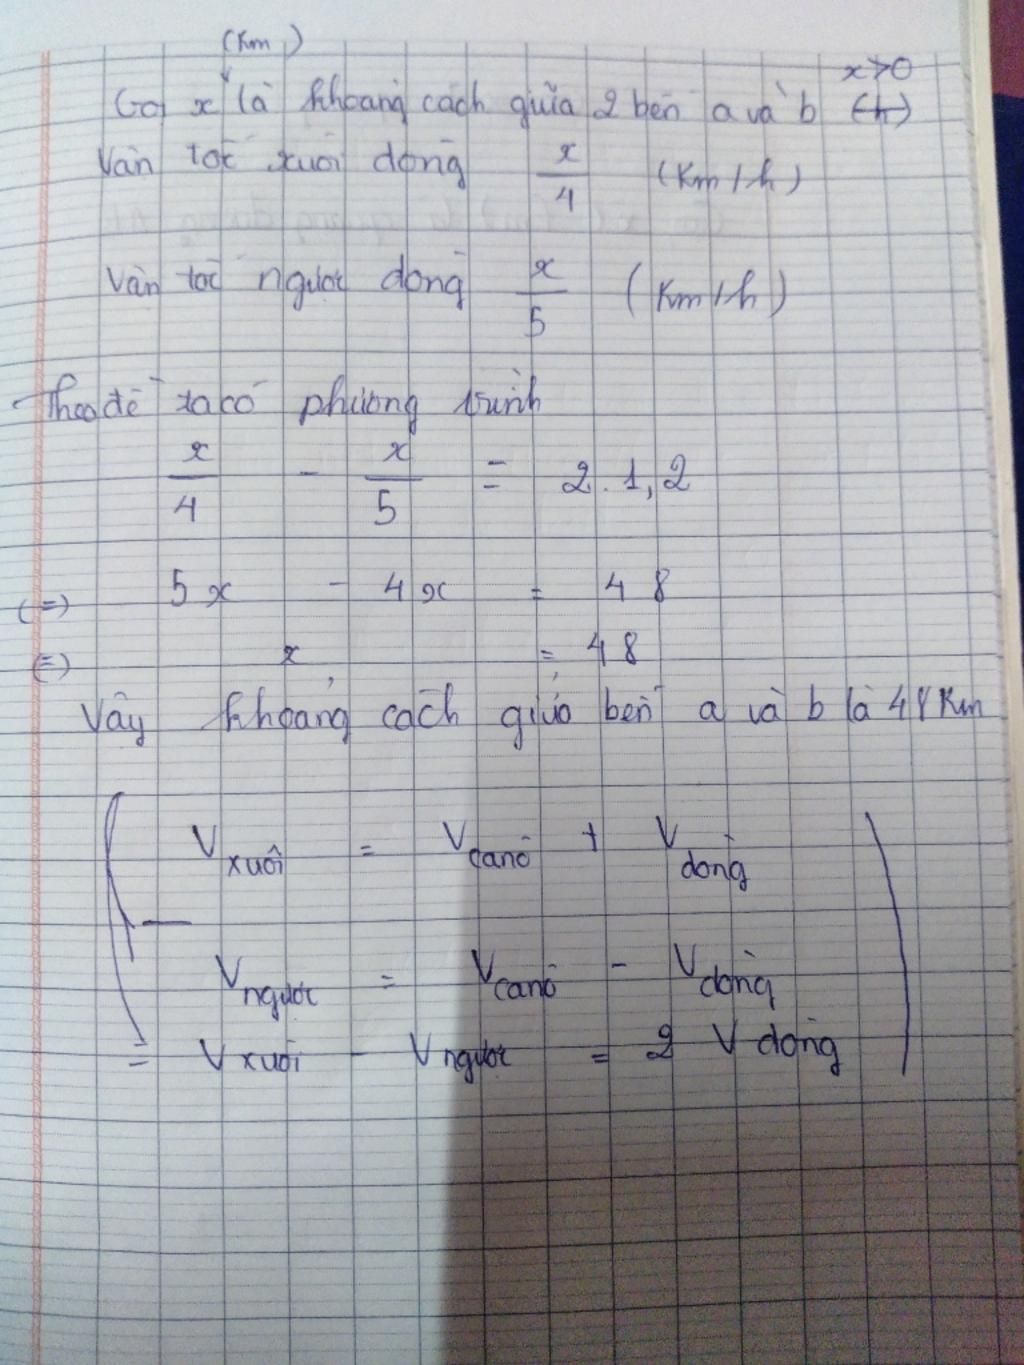 (Km)
Gọi x là khoảng cách giữa 2 bến a và b x>0
Vận tốc xuôi dòng x/4 (Km/h)
Vận tốc ngược dòng x/5 (Km/h)
Theo đề ta có phương trình
x/4 - x/5 = 2.1,2
(=) 5x - 4x = 48
(=) x = 48
Vậy khoảng cách giữa bến a và b là 48 Km
V xuôi = V canô + V dòng
V ngược = V canô - V dòng
= V xuôi - V ngược = 2 V dòng